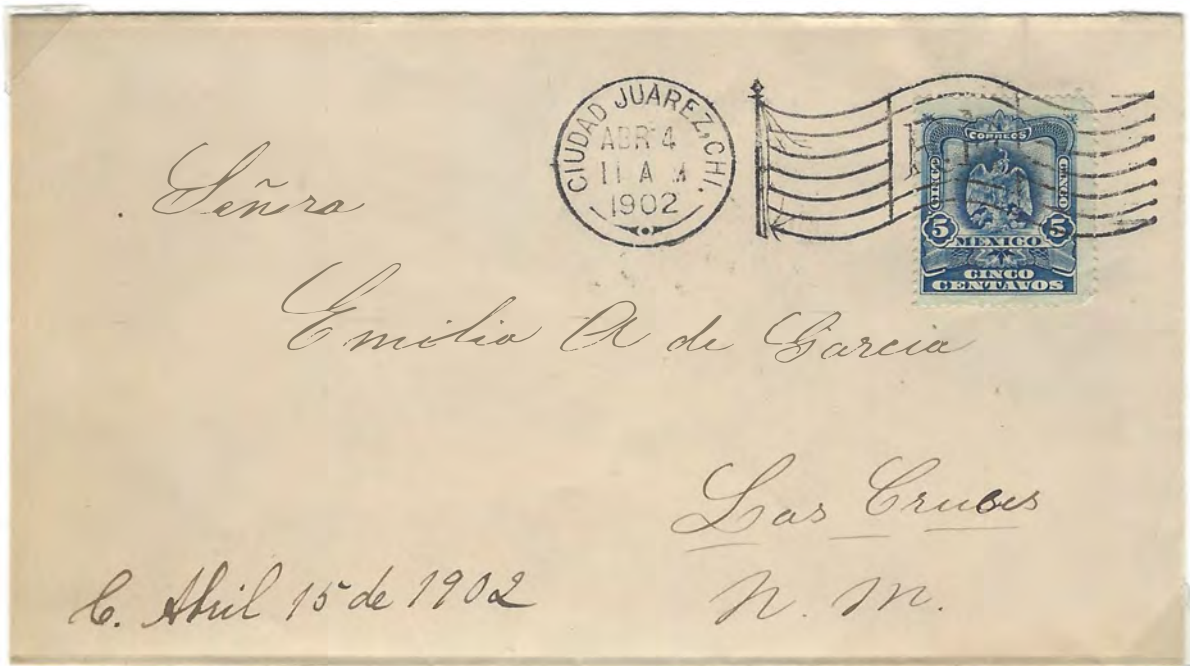 CIUDAD JUAREZ, CHI.
ABR 4
11 A M
1902
CORREOS
CINCO CINCO
5 MEXICO 5
CINCO
CENTAVOS
Señora
Emilia A de Garcia
Las Cruces
N. M.
C. Abril 15 de 1902